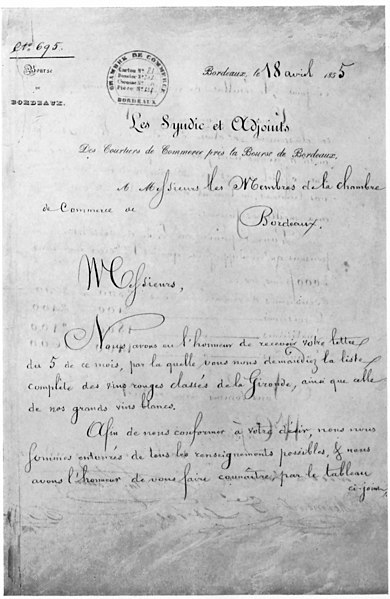 N° 695.
Bourse
DE
BORDEAUX.
CHAMBRE DE COMMERCE
BORDEAUX
Bordeaux, le 18 avril 1855
Les Syndic et Adjoints
Des Courtiers de Commerce près la Bourse de Bordeaux,
A Messieurs les Membres de la chambre
de Commerce de
Bordeaux.
Messieurs,
Nous avons eu l'honneur de recevoir votre lettre
du 5 de ce mois, par la quelle vous nous demandiez la liste
complète des vins rouges classés de la Gironde, ainsi que celle
de nos grands vins blancs.
Afin de nous conformer à votre désir nous nous
sommes entourés de tous les renseignements possibles, & nous
avons l'honneur de vous faire connaître, par le tableau
ci-joint